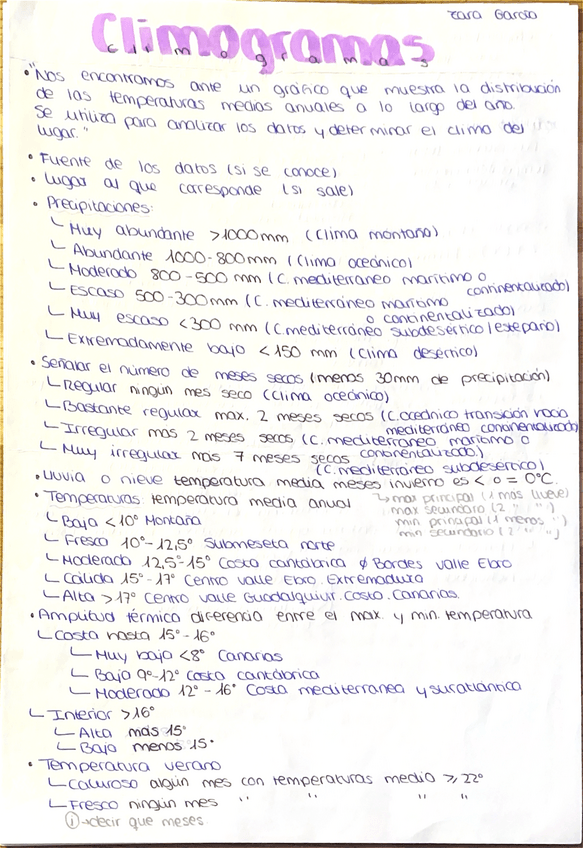 Zara García
Climogramas
climogramas
• "Nos encontramos ante un gráfico que muestra la distribución
de las temperaturas medias anuales a lo largo del año.
Se utiliza para analizar los datos y determinar el clima del
lugar."
• Fuente de los datos (si se conoce)
• Lugar al que corresponde (si sale)
• Precipitaciones:
└ Muy abundante >1000mm (Clima montaña)
└ Abundante 1000-800mm (Clima oceánico)
└ Moderado 800-500 mm (C. mediterraneo marítimo o
continentalizado)
└ Escaso 500-300mm (C. mediterráneo marítimo
o continentalizado)
└ Muy escaso <300 mm (C. mediterráneo subdesértico/estepario)
└ Extremadamente bajo <150 mm (Clima desértico)
• Señalar el número de meses secos (menos 30mm de precipitación)
└ Regular ningún mes seco (Clima oceánico)
└ Bastante regular max. 2 meses secos (C. oceánico transición hacia
mediterráneo continentalizado)
└ Irregular mas 2 meses secos (C. mediterráneo marítimo o
continentalizado)
└ Muy irregular mas 7 meses secos
(C. mediterráneo subdesértico)
• Lluvia o nieve temperatura media meses invierno es < o = 0°C.
• Temperaturas: temperatura media anual
↳ max principal (1 mas llueve)
max secundario (2 " ")
min principal (1 menos ")
min secundario (2 " ")
└ Baja <10° Montaña
└ Fresco 10°-12,5° Submeseta norte
└ Moderada 12,5°-15° Costa cantábrica y Bordes valle Ebro
└ Cálida 15°-17° Centro valle Ebro. Extremadura
└ Alta >17° Centro valle Guadalquivir. Costa. Canarias.
• Amplitud térmica diferencia entre el max. y min. temperatura
└ Costa hasta 15°-16°
└ Muy baja <8° Canarias
└ Baja 9°-12° costa cantábrica
└ Moderada 12°-16° Costa mediterranea y suratlántica
└ Interior >16°
└ Alta más 15°
└ Baja menos 15°
• Temperatura verano
└ Caluroso algún mes con temperaturas media ⩾ 22°
└ Fresco ningún mes " " " "
① → decir que meses